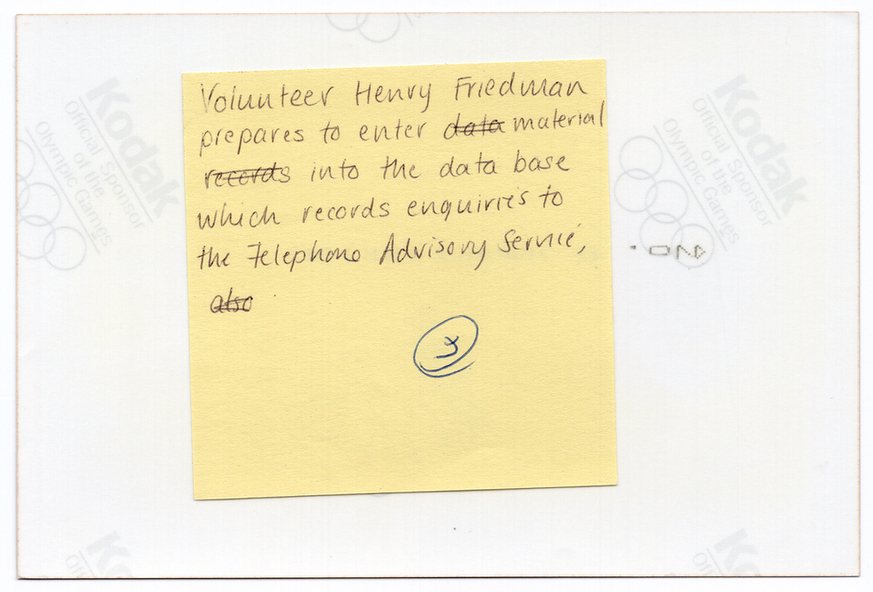 Volunteer Henry Friedman
prepares to enter data material
records into the data base
which records enquiries to
the Telephone Advisory Service,
also
3
Kodak
Official Sponsor
of the
Olympic Games
Kodak
Official Sponsor
of the
Olympic Games